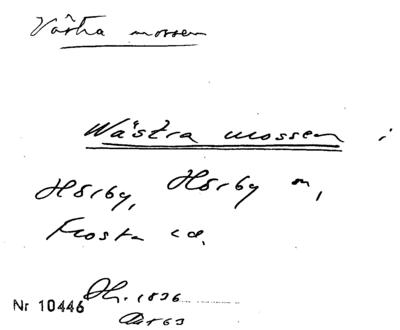 Västra mossen
Wästra mossen i
Hörby, Hörby sn,
Frosta hd.
Nr 10446 Dh. 1836